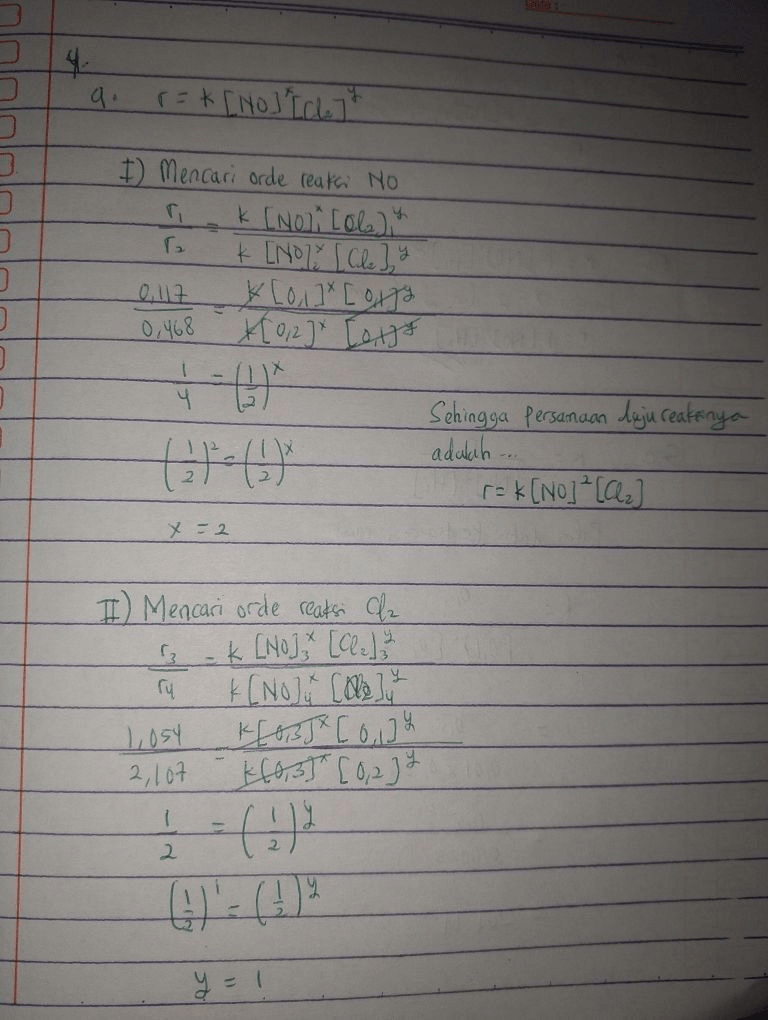 4.
a. r = k [NO]^x [Cl₂]^y
I) Mencari orde reaksi NO
r₁/r₂ = k [NO]₁^x [Cl₂]₁^y / k [NO]₂^x [Cl₂]₂^y
0,117/0,468 = k [0,1]^x [0,1]^y / k [0,2]^x [0,1]^y
1/4 = (1/2)^x
(1/2)² = (1/2)^x
x = 2
Sehingga Persamaan laju reaksinya
adalah ...
r = k [NO]² [Cl₂]
II) Mencari orde reaksi Cl₂
r₃/r₄ = k [NO]₃^x [Cl₂]₃^y / k [NO]₄^x [Cl₂]₄^y
1,054/2,107 = k [0,3]^x [0,1]^y / k [0,3]^x [0,2]^y
1/2 = (1/2)^y
(1/2)¹ = (1/2)^y
y = 1